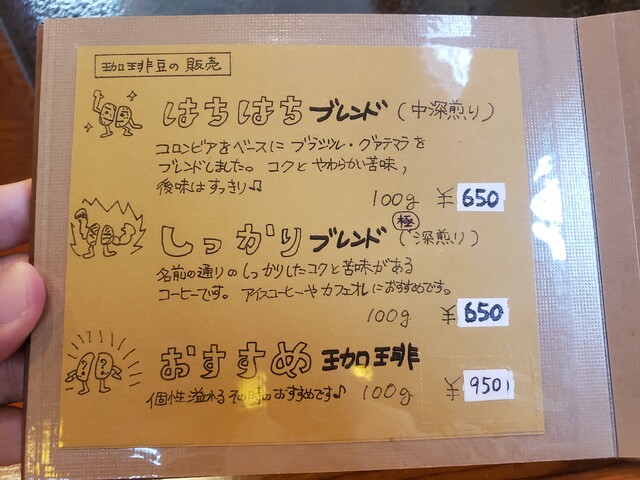 珈琲豆の販売
はちはちブレンド(中深煎り)
コロンビアをベースに ブラジル・グァテマラを
ブレンドしました。コクと やわらかい苦味,
後味はすっきり♫
100g ¥650
しっかりブレンド(極深煎り)
名前の通りの しっかりしたコクと苦味がある
コーヒーです。アイスコーヒーや カフェオレにおすすめです。
100g ¥650
おすすめ珈琲
個性溢れる その時のおすすめです♪ 100g ¥950